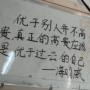 优于别人并不高
贵,真正的高贵应该
是优于过去的自己
——海明威